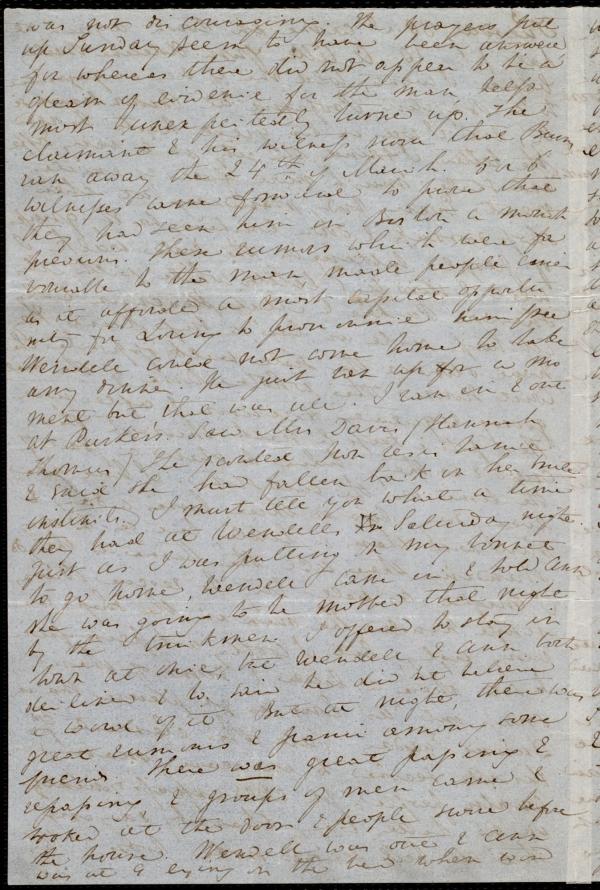 was not discouraging. The prayers put
up Sunday seem to have been answered
for whereas there did not appear to be a
gleam of evidence for the man, helps
most unexpectedly turned up. The
claimant & his witness swore that Burns
ran away the 24th of March. 5 or 6
witnesses came forward to prove that
they had seen him in Boston a month
previous. These rumors which were fa
vorable to the man, made people
as it afforded a most capital opportu
nity for Loring to pronounce him free
Wendell could not come home to take
any dinner. He just ran up for a mo
ment but that was all. I ran in & out
at Parker's. Saw Mrs Davis (Hannah
Thomas) She non resistance
& said she had fallen back on her brute
instincts. I must tell you what a time
they had at Wendells Saturday night.
Just as I was putting on my bonnet
to go home, Wendell came in & told Ann
she was going to be mobbed that night
by the truckmen. I offered to stay in
town at once, but Wendell & Ann both
declined & W. said he did not believe
a word of it. But at night, there was
great rumors & panic among some
friends. There was great passing &
repassing & groups of men came &
looked at the door & people swore before
the house. Wendell was out & Ann
was at 9 on the bed when